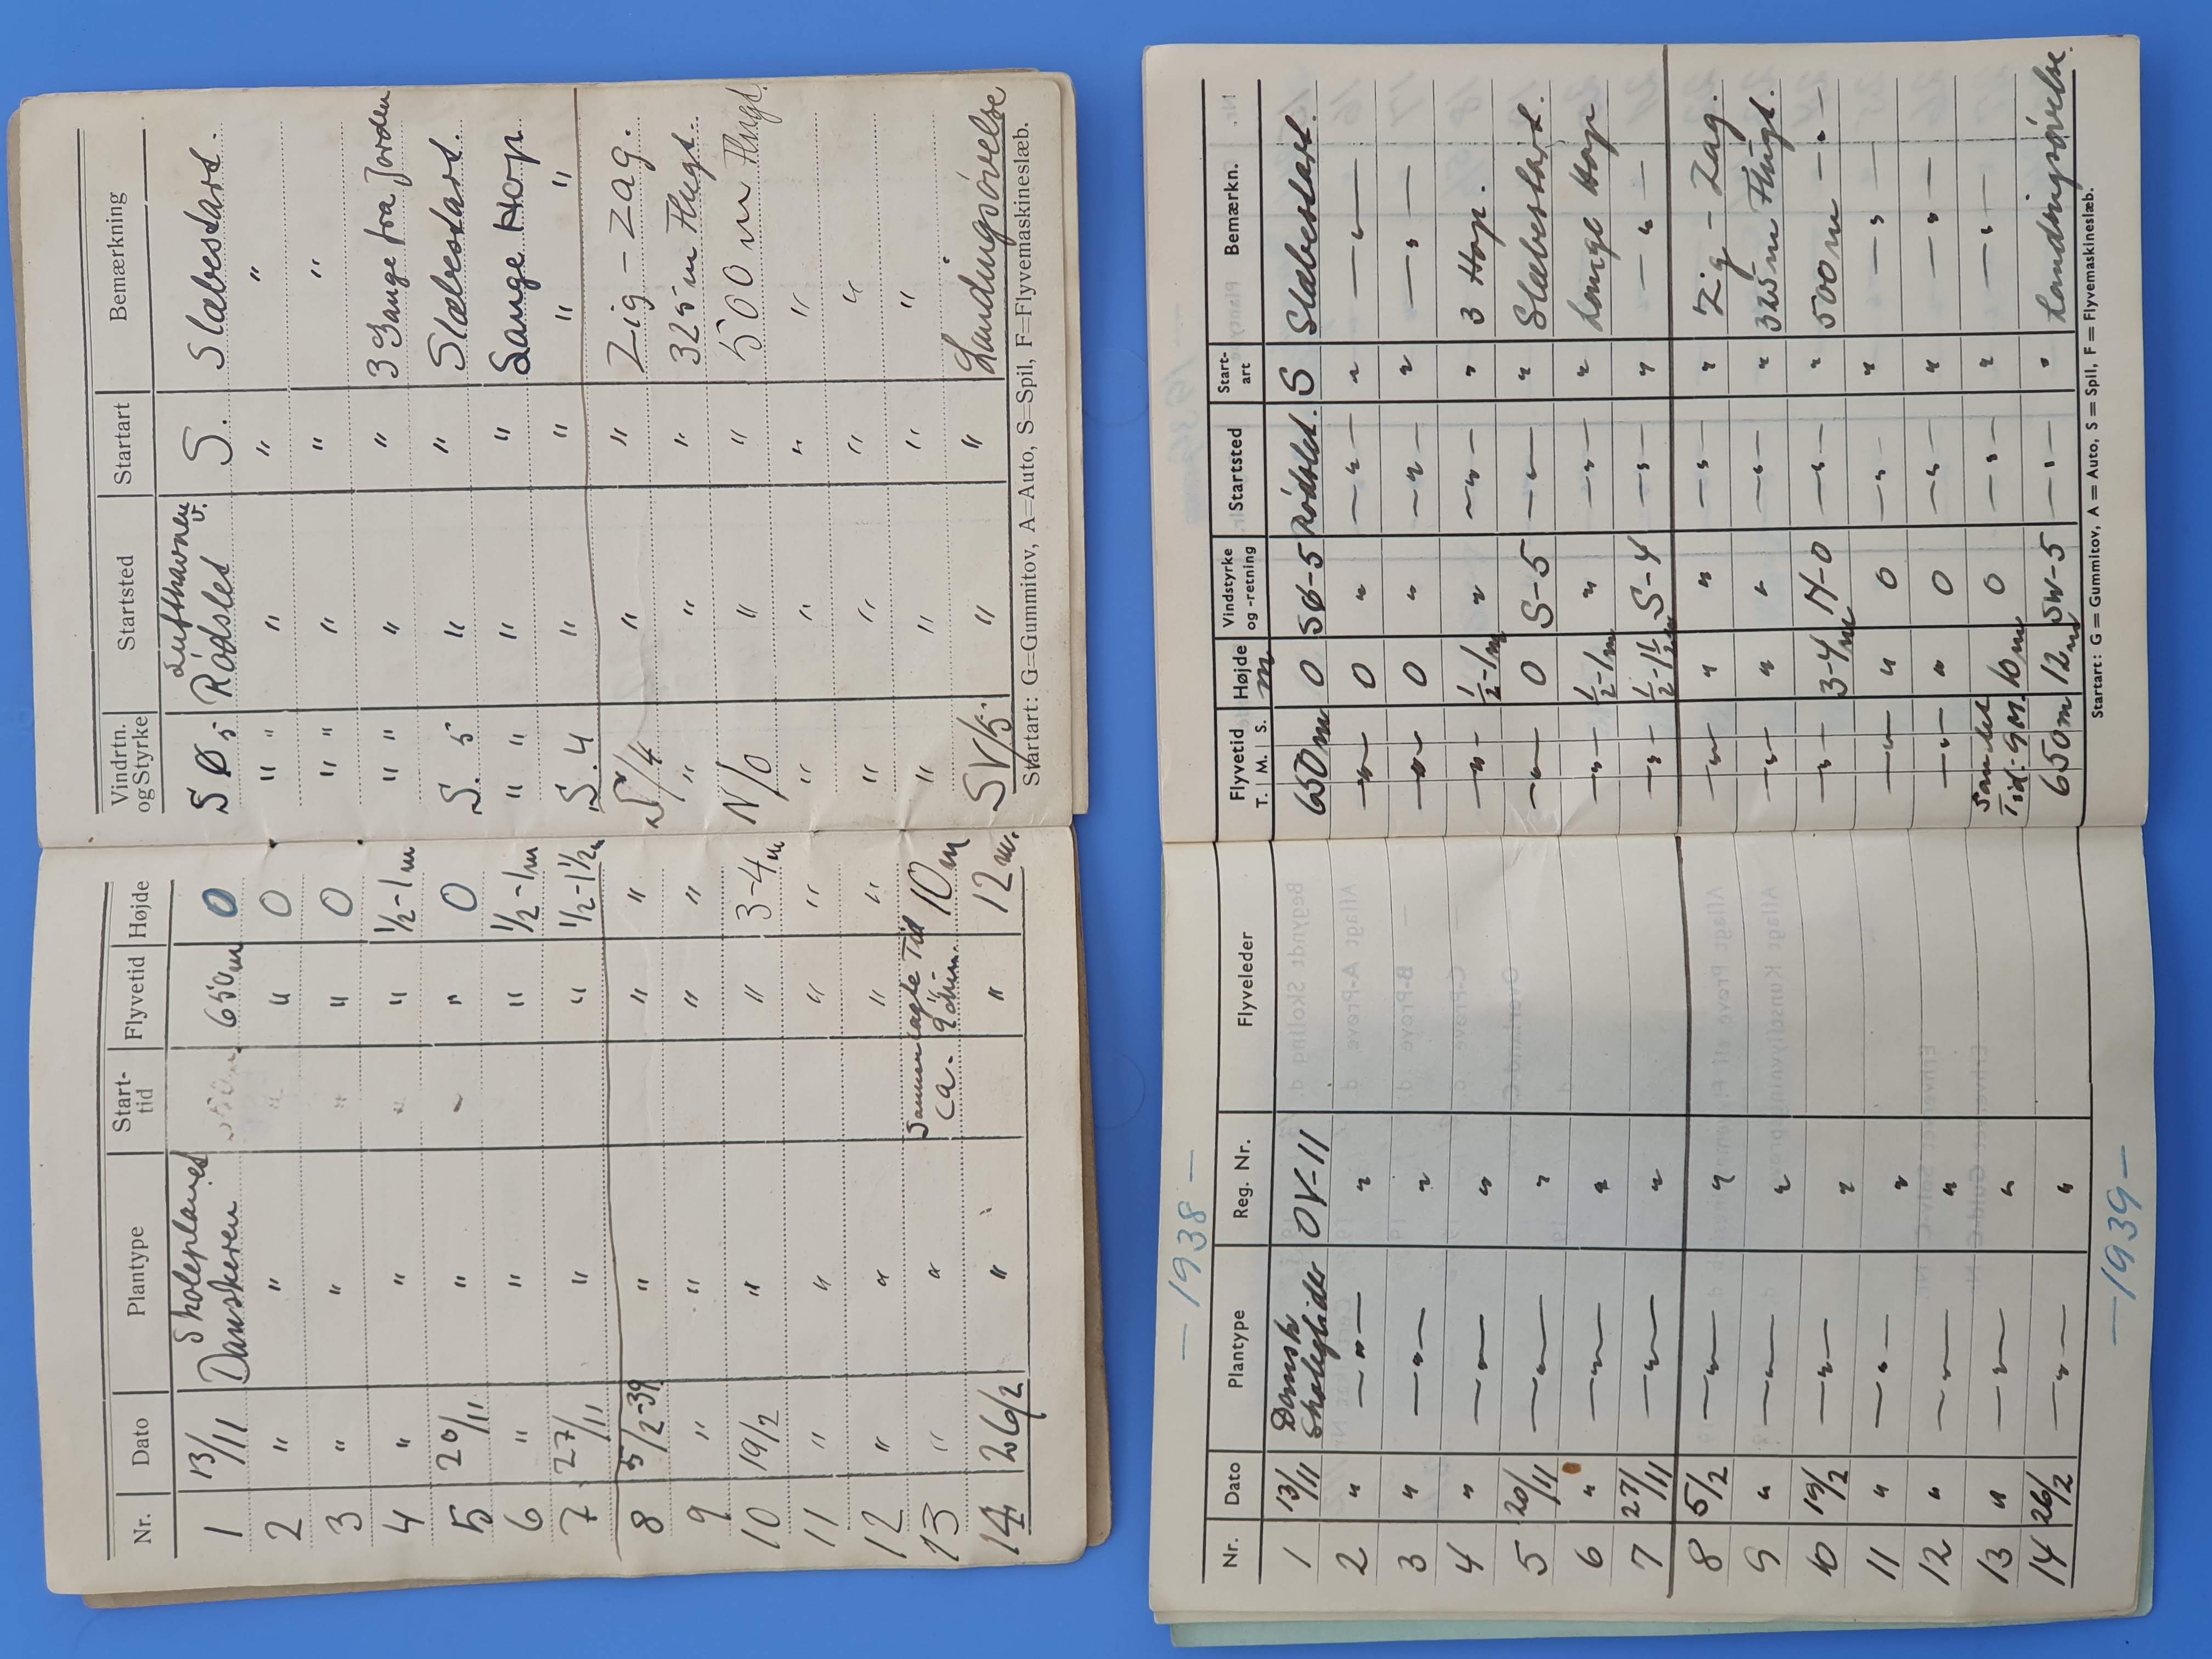 Nr. Dato Plantype Start-tid Flyvetid Højde Vindrtn. og Styrke Startsted Startart Bemærkning
1 13/11 Skoleplanet Danskeren 650m 0 SØ 5 Lufthavnen Rödslet v. S. Slæbestart.
2 " " " " 0 " " " " "
3 " " " " 0 " " " " "
4 " " " " ½-1m " " " " 3 Gange fra Jorden
5 20/11 " " 0 S. 5 " " Slæbestart.
6 " " " ½-1m " " " " Lange Hop
7 27/11 " " ½-1½m S. 4 " " " "
8 5/2-39 " " " S/4 " " Zig-Zag.
9 " " " " " " " 325 m Flugt.
10 19/2 " " 3-4m N/0 " " 500 m Flugt.
11 " " " " " " " "
12 " " " " " " " "
13 " " Sammenlagte Tid ca. 9 Min. 10m " " " "
14 26/2 " " 12m. SV/5. " " Landingsøvelse
Startart: G=Gummitov, A=Auto, S=Spil, F=Flyvemaskineslæb.
— 1938 —
Nr. Dato Plantype Reg. Nr. Flyveleder Flyvetid T. M. S. Højde m Vindstyrke og -retning Startsted Start-art Bemærkn.
1 13/11 Dansk Skoleglider OY-11 650m 0 SØ-5 Rödslet. S Slæbestart.
2 " —"— " —"— 0 " —"— " —"—
3 " —"— " —"— 0 " —"— " —"—
4 " —"— " —"— ½-1m " —"— " 3 Hop.
5 20/11 —"— " —"— 0 S-5 —"— " Slæbestart.
6 " —"— " —"— ½-1m " —"— " Lange Hop
7 27/11 —"— " —"— ½-1½m S-4 —"— " —"—
8 5/2 —"— " —"— " " —"— " Zig-Zag.
9 " —"— " —"— " " —"— " 325m Flugt.
10 19/2 —"— " —"— 3-4m N-0 —"— " 500m —"—
11 " —"— " —"— " 0 —"— " —"—
12 " —"— " —"— " 0 —"— " —"—
13 " —"— " Samlet Tid. 9M. 10m 0 —"— " —"—
14 26/2 —"— " 650m 12m SW-5 —"— " Landingsøvelse.
Startart: G = Gummitov, A = Auto, S = Spil, F = Flyvemaskineslæb.
— 1939 —